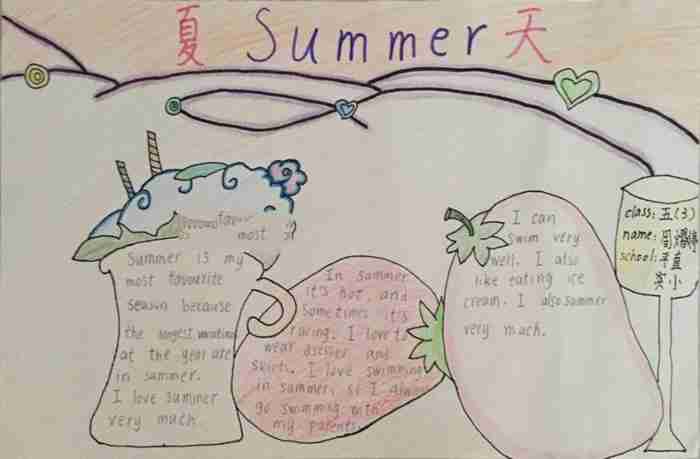 夏 Summer 天
favour
most
Summer is my
most favourite
season because
the longest vacation
at the year are
in summer.
I love summer
very much.
In summer
it's hot, and
Sometimes it's
raining. I love to
wear dresses and
skirts. I love swimming
in summer, so I always
go swimming with
my parents.
I can
Swim very
well. I also
like eating ice
cream. I also summer
very much.
class: 五(3)
name: 周
school: 平直
实小